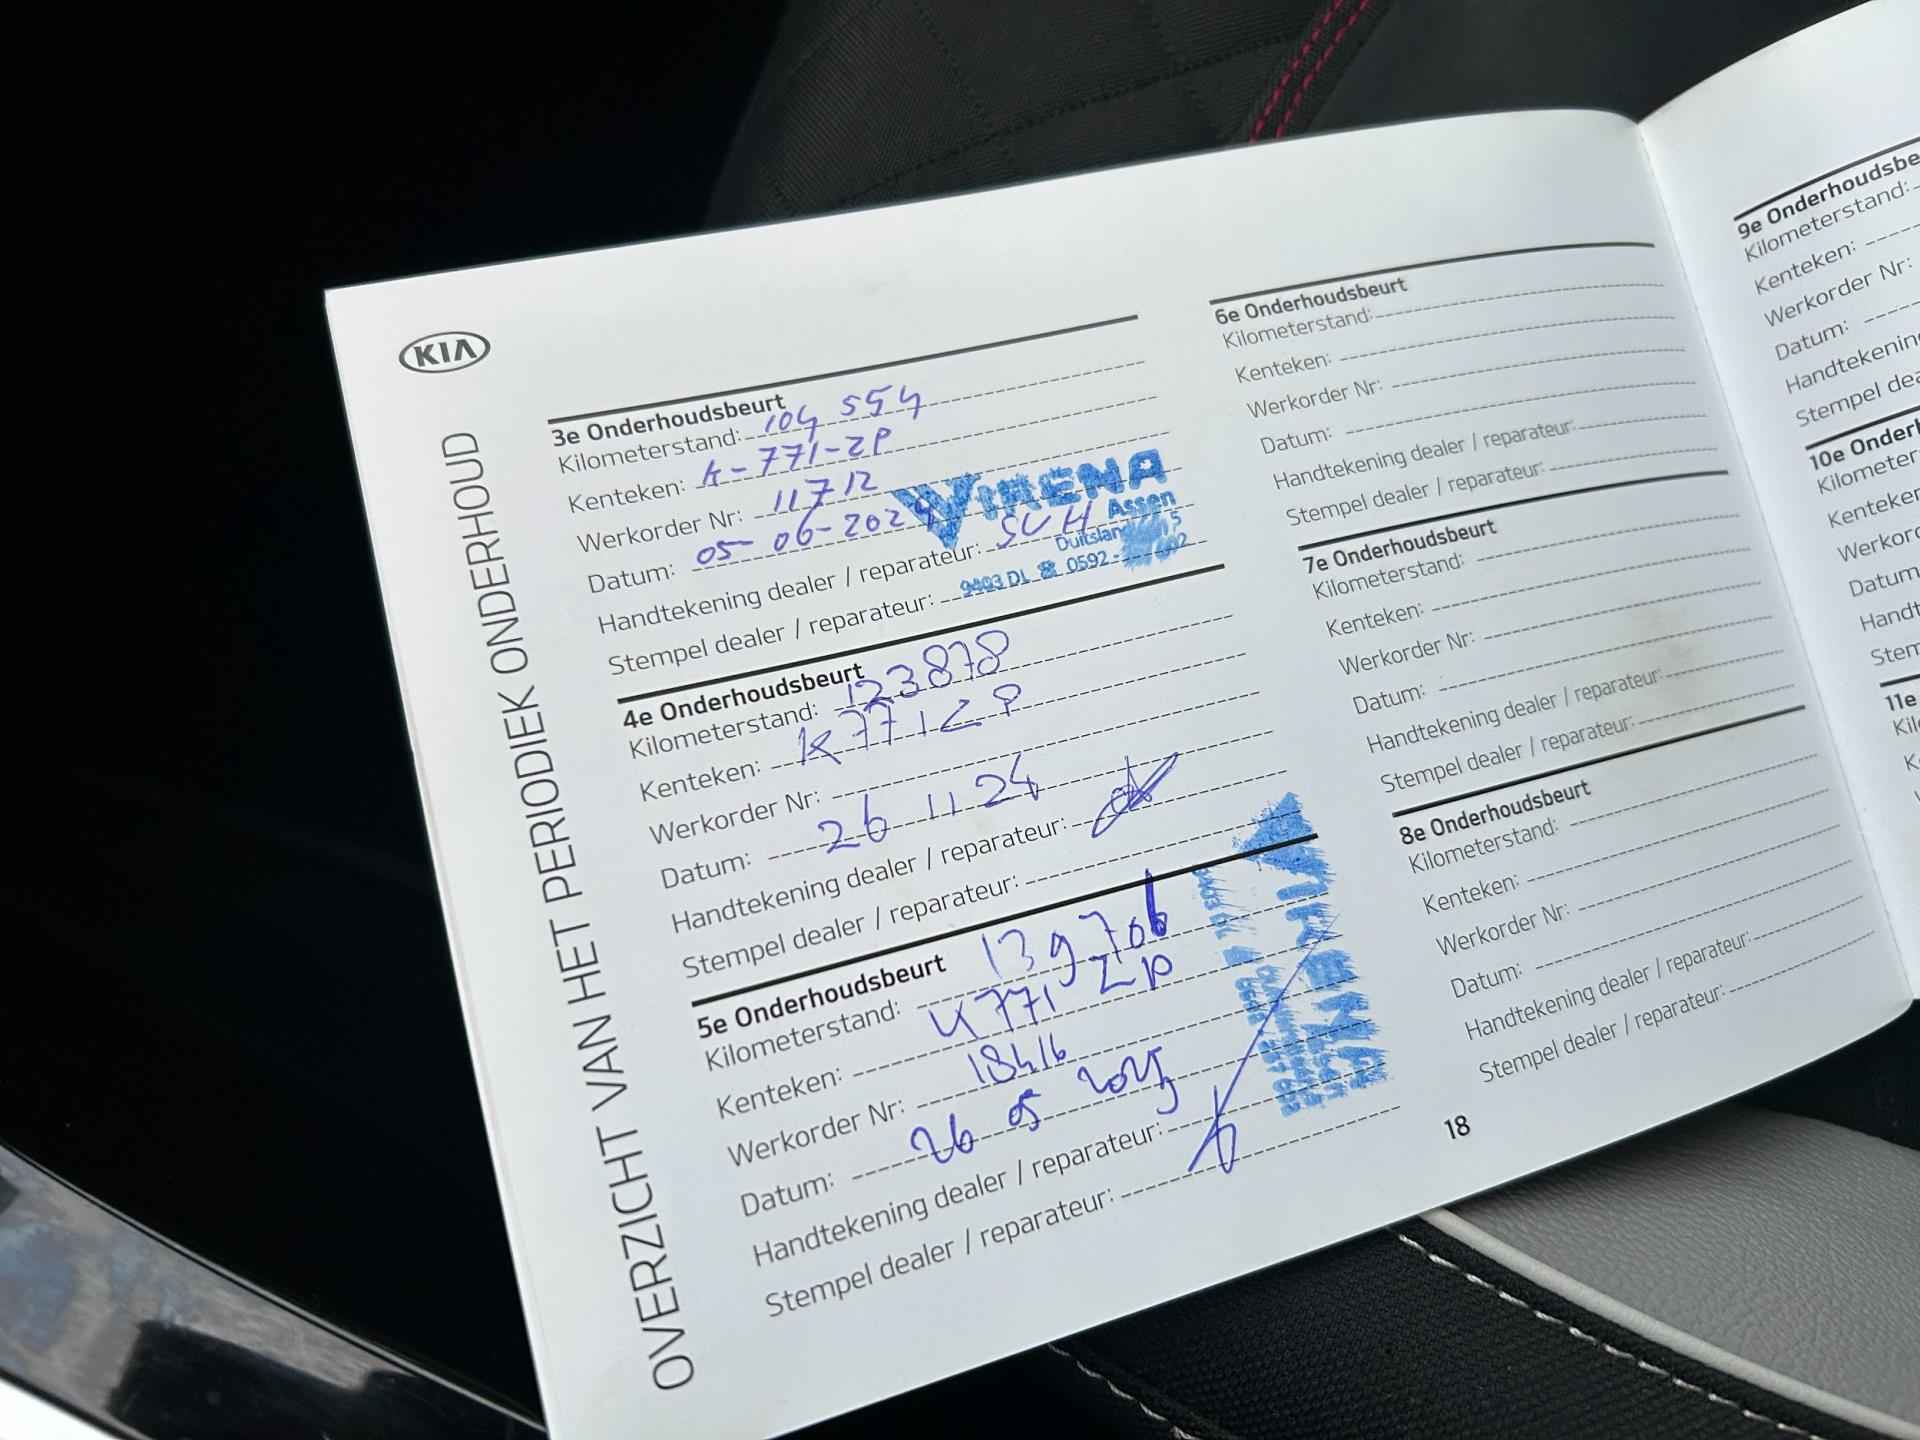 KIA
OVERZICHT VAN HET PERIODIEK ONDERHOUD
3e Onderhoudsbeurt
Kilometerstand: 104 554
Kenteken: K-771-ZP
Werkorder Nr: 11712
Datum: 05-06-2024
Handtekening dealer / reparateur: SVH
Stempel dealer / reparateur:
VIKENA
Assen
9403 DL ☎ 0592-
4e Onderhoudsbeurt
Kilometerstand: 123878
Kenteken: K771ZP
Werkorder Nr:
Datum: 26 11 24
Handtekening dealer / reparateur:
Stempel dealer / reparateur:
5e Onderhoudsbeurt
Kilometerstand: 139706
Kenteken: K771 ZP
Werkorder Nr: 18416
Datum: 26 05 2025
Handtekening dealer / reparateur:
Stempel dealer / reparateur:
VIKENA
6e Onderhoudsbeurt
Kilometerstand:
Kenteken:
Werkorder Nr:
Datum:
Handtekening dealer / reparateur:
Stempel dealer / reparateur:
7e Onderhoudsbeurt
Kilometerstand:
Kenteken:
Werkorder Nr:
Datum:
Handtekening dealer / reparateur:
Stempel dealer / reparateur:
8e Onderhoudsbeurt
Kilometerstand:
Kenteken:
Werkorder Nr:
Datum:
Handtekening dealer / reparateur:
Stempel dealer / reparateur:
18
9e Onderhoudsbe
Kilometerstand:
Kenteken:
Werkorder Nr:
Datum:
Handtekening
Stempel dea
10e Onderh
Kilometer
Kenteken
Werkord
Datum
Handt
Stem
11e
Kil
K